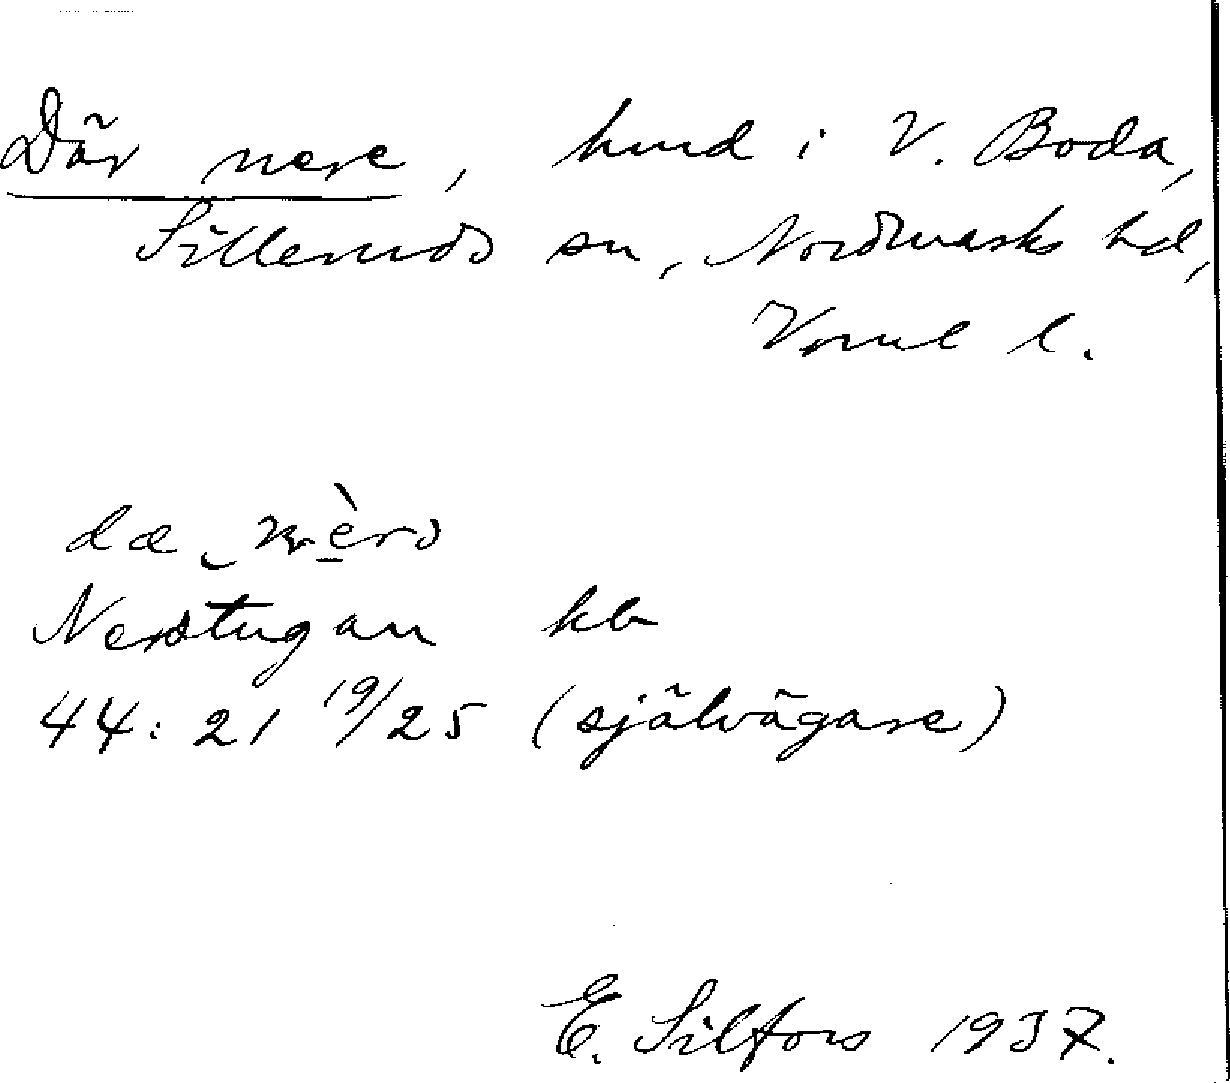 Där nere, hmd i V. Boda,
Silleruds sn, Nordmarks hd,
Vrml l.
Nerstugan kb
44: 21 19/25 (självägare)
E. Silfors 1937.